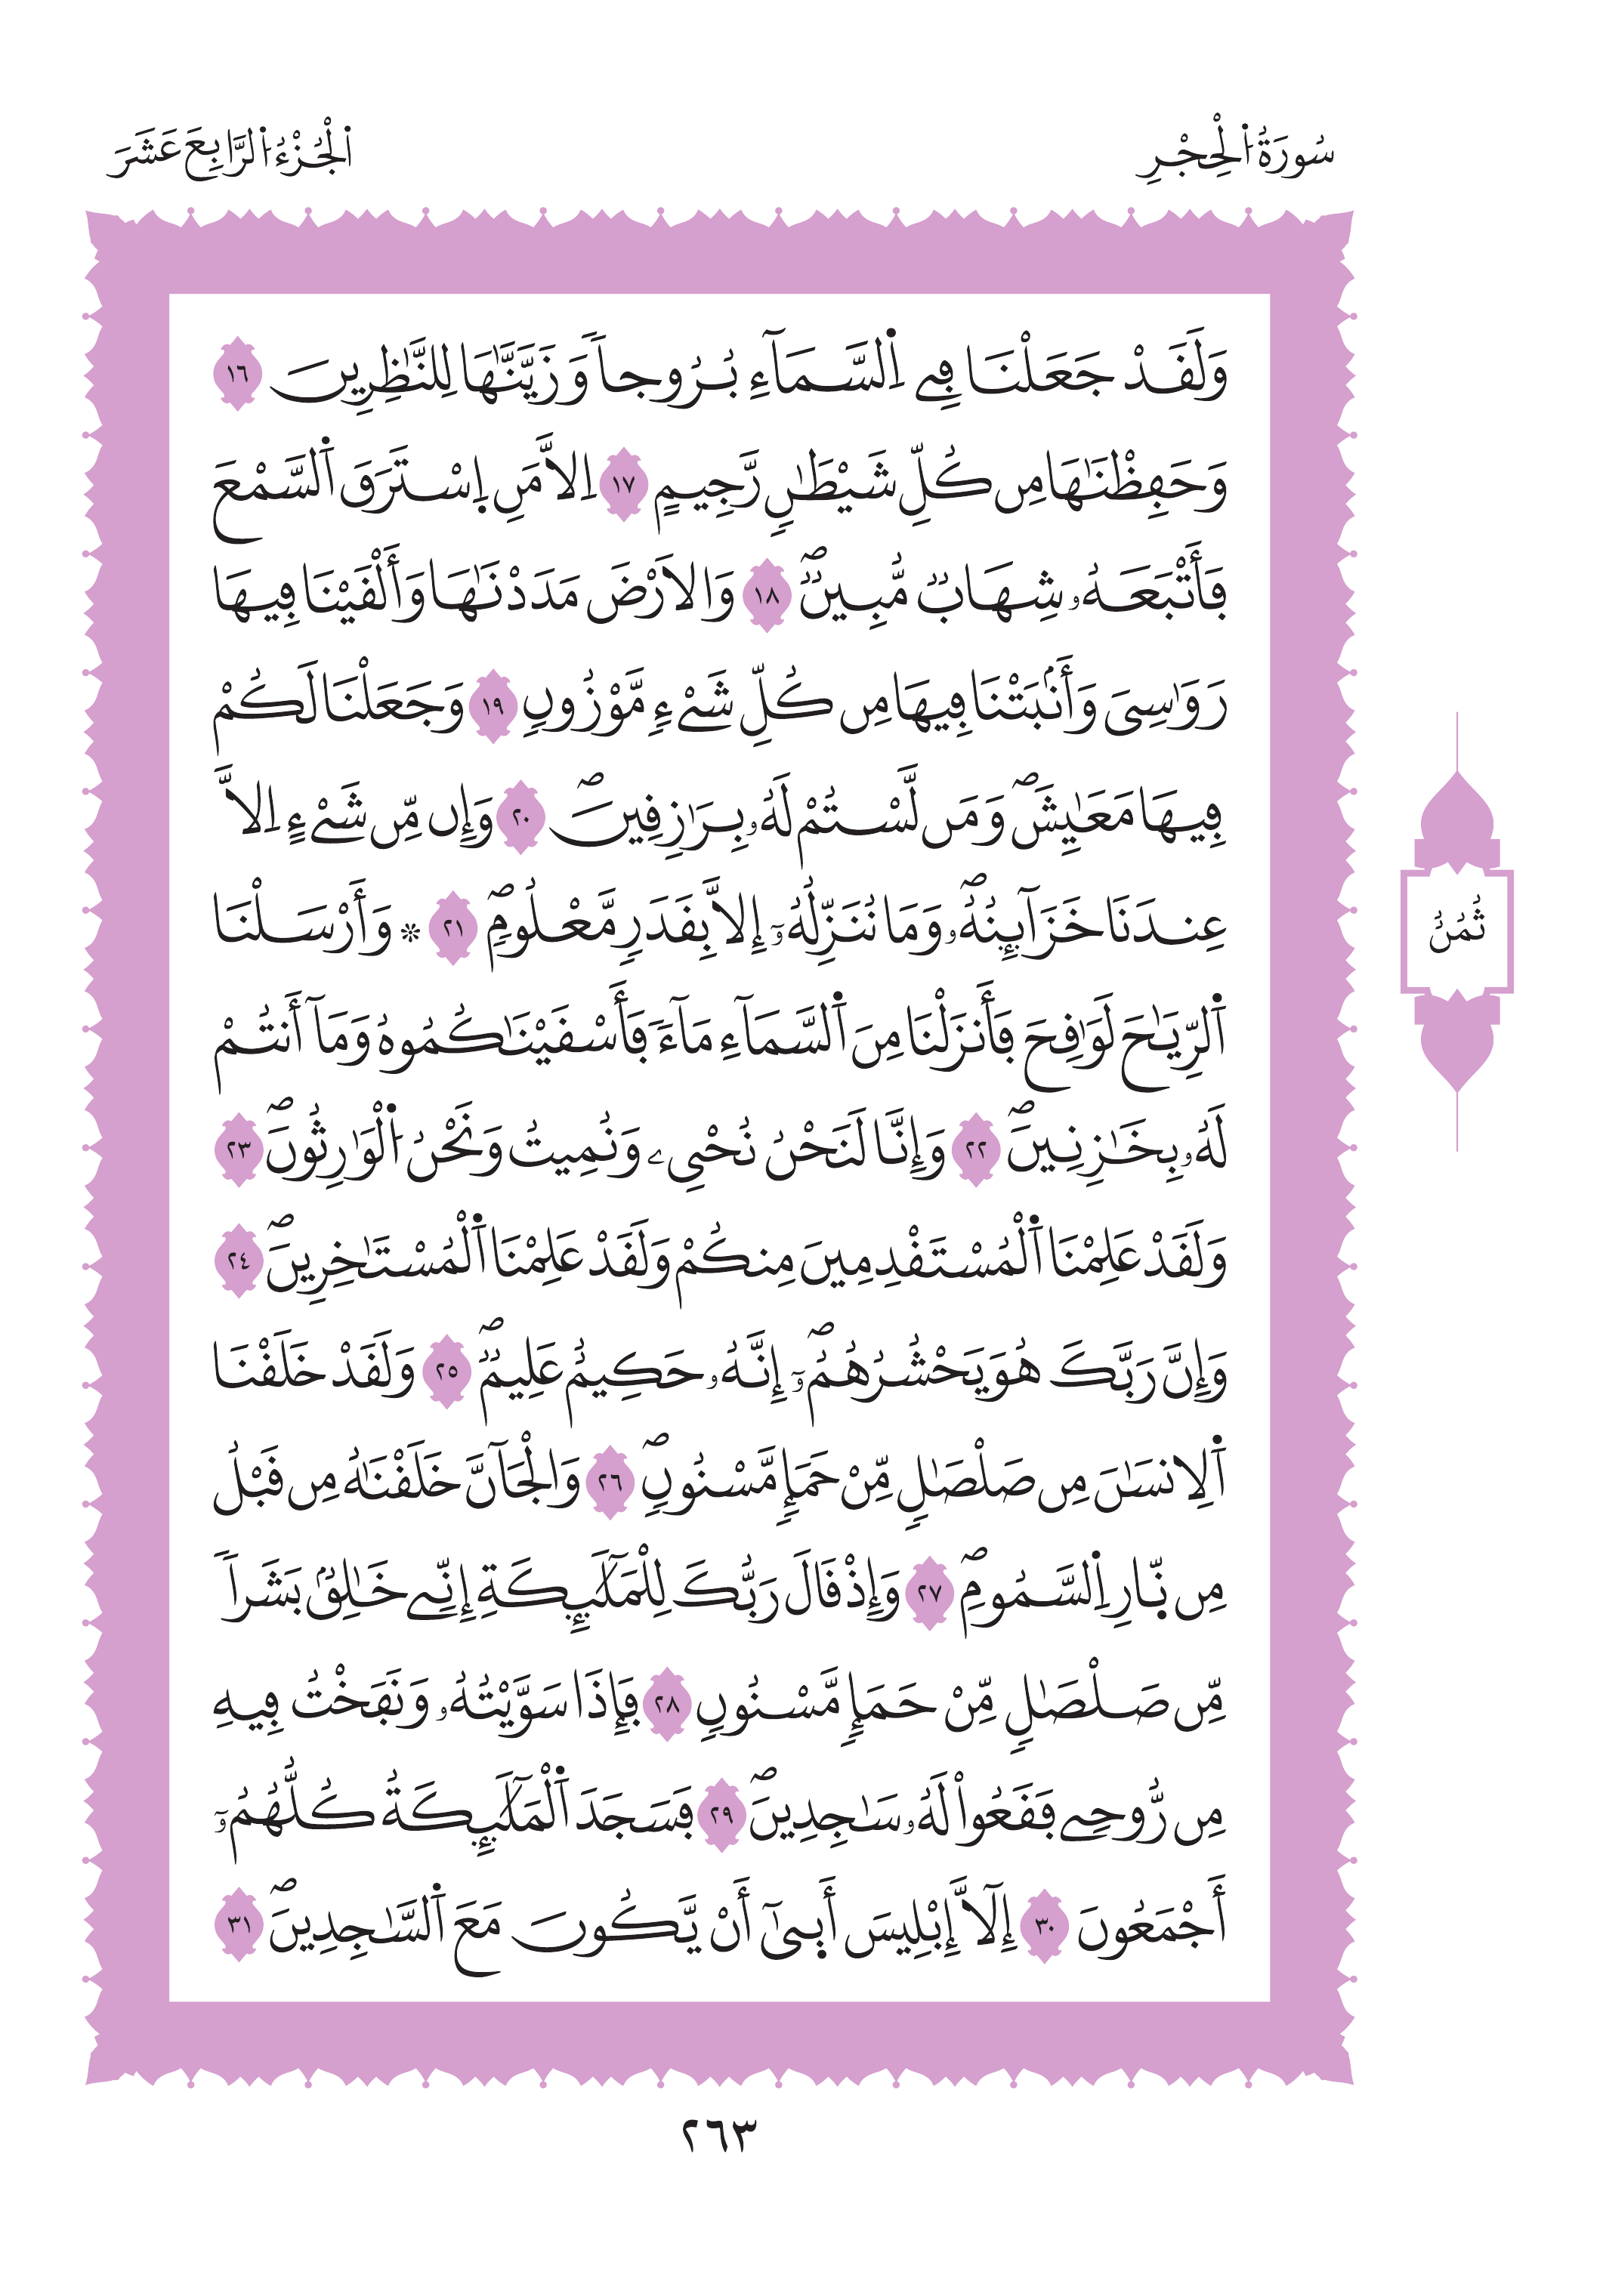 سُورَةُ اُ۬لْحِجْرِ
اَ۬لْجُزْءُ اُ۬لرَّابِعَ عَشَرَ
وَلَقَدْ جَعَلْنَا فِے اِ۬لسَّمَآءِ بُرُوجاٗ وَزَيَّنَّٰهَا لِلنَّٰظِرِينَ ١٦
وَحَفِظْنَٰهَا مِن كُلِّ شَيْطَٰنٖ رَّجِيمٍ ١٧ اِلَّا مَنِ اِ۪سْتَرَقَ اَ۬لسَّمْعَ
فَأَتْبَعَهُۥ شِهَابٞ مُّبِينٞۖ ١٨ وَالَارْضَ مَدَدْنَٰهَا وَأَلْقَيْنَا فِيهَا
رَوَٰسِيَ وَأَنۢبَتْنَا فِيهَا مِن كُلِّ شَےْءٖ مَّوْزُونٖ ١٩ وَجَعَلْنَا لَكُمْ
فِيهَا مَعَٰيِشَۖ وَمَن لَّسْتُمْ لَهُۥ بِرَٰزِقِينَۖ ٢٠ وَإِن مِّن شَےْءٍ اِلَّا
عِندَنَا خَزَآئِنُهُۥۖ وَمَا نُنَزِّلُهُۥٓ إِلَّا بِقَدَرٖ مَّعْلُومٖۖ ٢١ ۞ وَأَرْسَلْنَا
اَ۬لرِّيَٰحَ لَوَٰقِحَ فَأَنزَلْنَا مِنَ اَ۬لسَّمَآءِ مَآءٗ فَأَسْقَيْنَٰكُمُوهُ وَمَآ أَنتُمْ
لَهُۥ بِخَٰزِنِينَۖ ٢٢ وَإِنَّا لَنَحْنُ نُحْيِۦ وَنُمِيتُ وَنَحْنُ اُ۬لْوَٰرِثُونَۖ ٢٣
وَلَقَدْ عَلِمْنَا اَ۬لْمُسْتَقْدِمِينَ مِنكُمْ وَلَقَدْ عَلِمْنَا اَ۬لْمُسْتَٰخِرِينَۖ ٢٤
وَإِنَّ رَبَّكَ هُوَ يَحْشُرُهُمُۥٓۖ إِنَّهُۥ حَكِيمٌ عَلِيمٞۖ ٢٥ وَلَقَدْ خَلَقْنَا
اَ۬لِانسَٰنَ مِن صَلْصَٰلٖ مِّنْ حَمَإٖ مَّسْنُونٖۖ ٢٦ وَالْجَآنَّ خَلَقْنَٰهُ مِن قَبْلُ
مِن نّ۪ارِ اِ۬لسَّمُومِۖ ٢٧ وَإِذْ قَالَ رَبُّكَ لِلْمَلَٰٓئِكَةِ إِنِّے خَٰلِقُۢ بَشَراٗ
مِّن صَلْصَٰلٖ مِّنْ حَمَإٖ مَّسْنُونٖ ٢٨ فَإِذَا سَوَّيْتُهُۥ وَنَفَخْتُ فِيهِ
مِن رُّوحِے فَقَعُواْ لَهُۥ سَٰجِدِينَۖ ٢٩ فَسَجَدَ اَ۬لْمَلَٰٓئِكَةُ كُلُّهُمُۥٓ
أَجْمَعُونَ ٣٠ إِلَّآ إِبْلِيسَ أَب۪يٰٓ أَنْ يَّكُونَ مَعَ اَ۬لسَّٰجِدِينَۖ ٣١
ثُمُنُ
٢٦٣